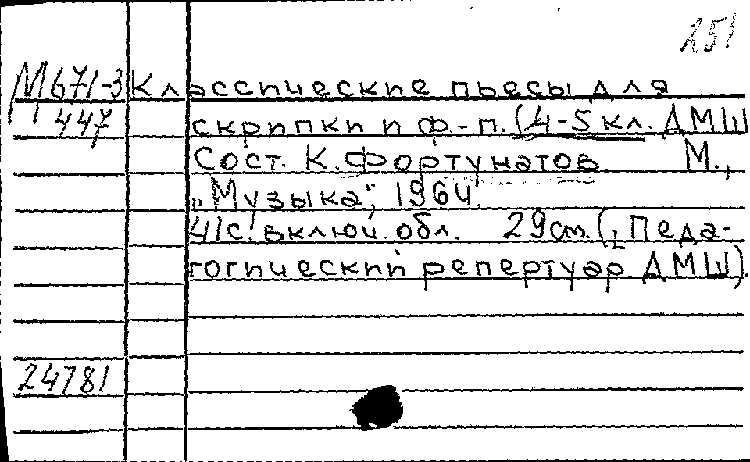 251
М671-3 Классические пьесы для
447 скрипки и ф.-п. (4-5 кл. ДМШ
Сост. К. Фортунатов. М.,
„Музыка", 1964.
41с. включ. обл. 29см. („Педа-
гогический репертуар ДМШ).
24781